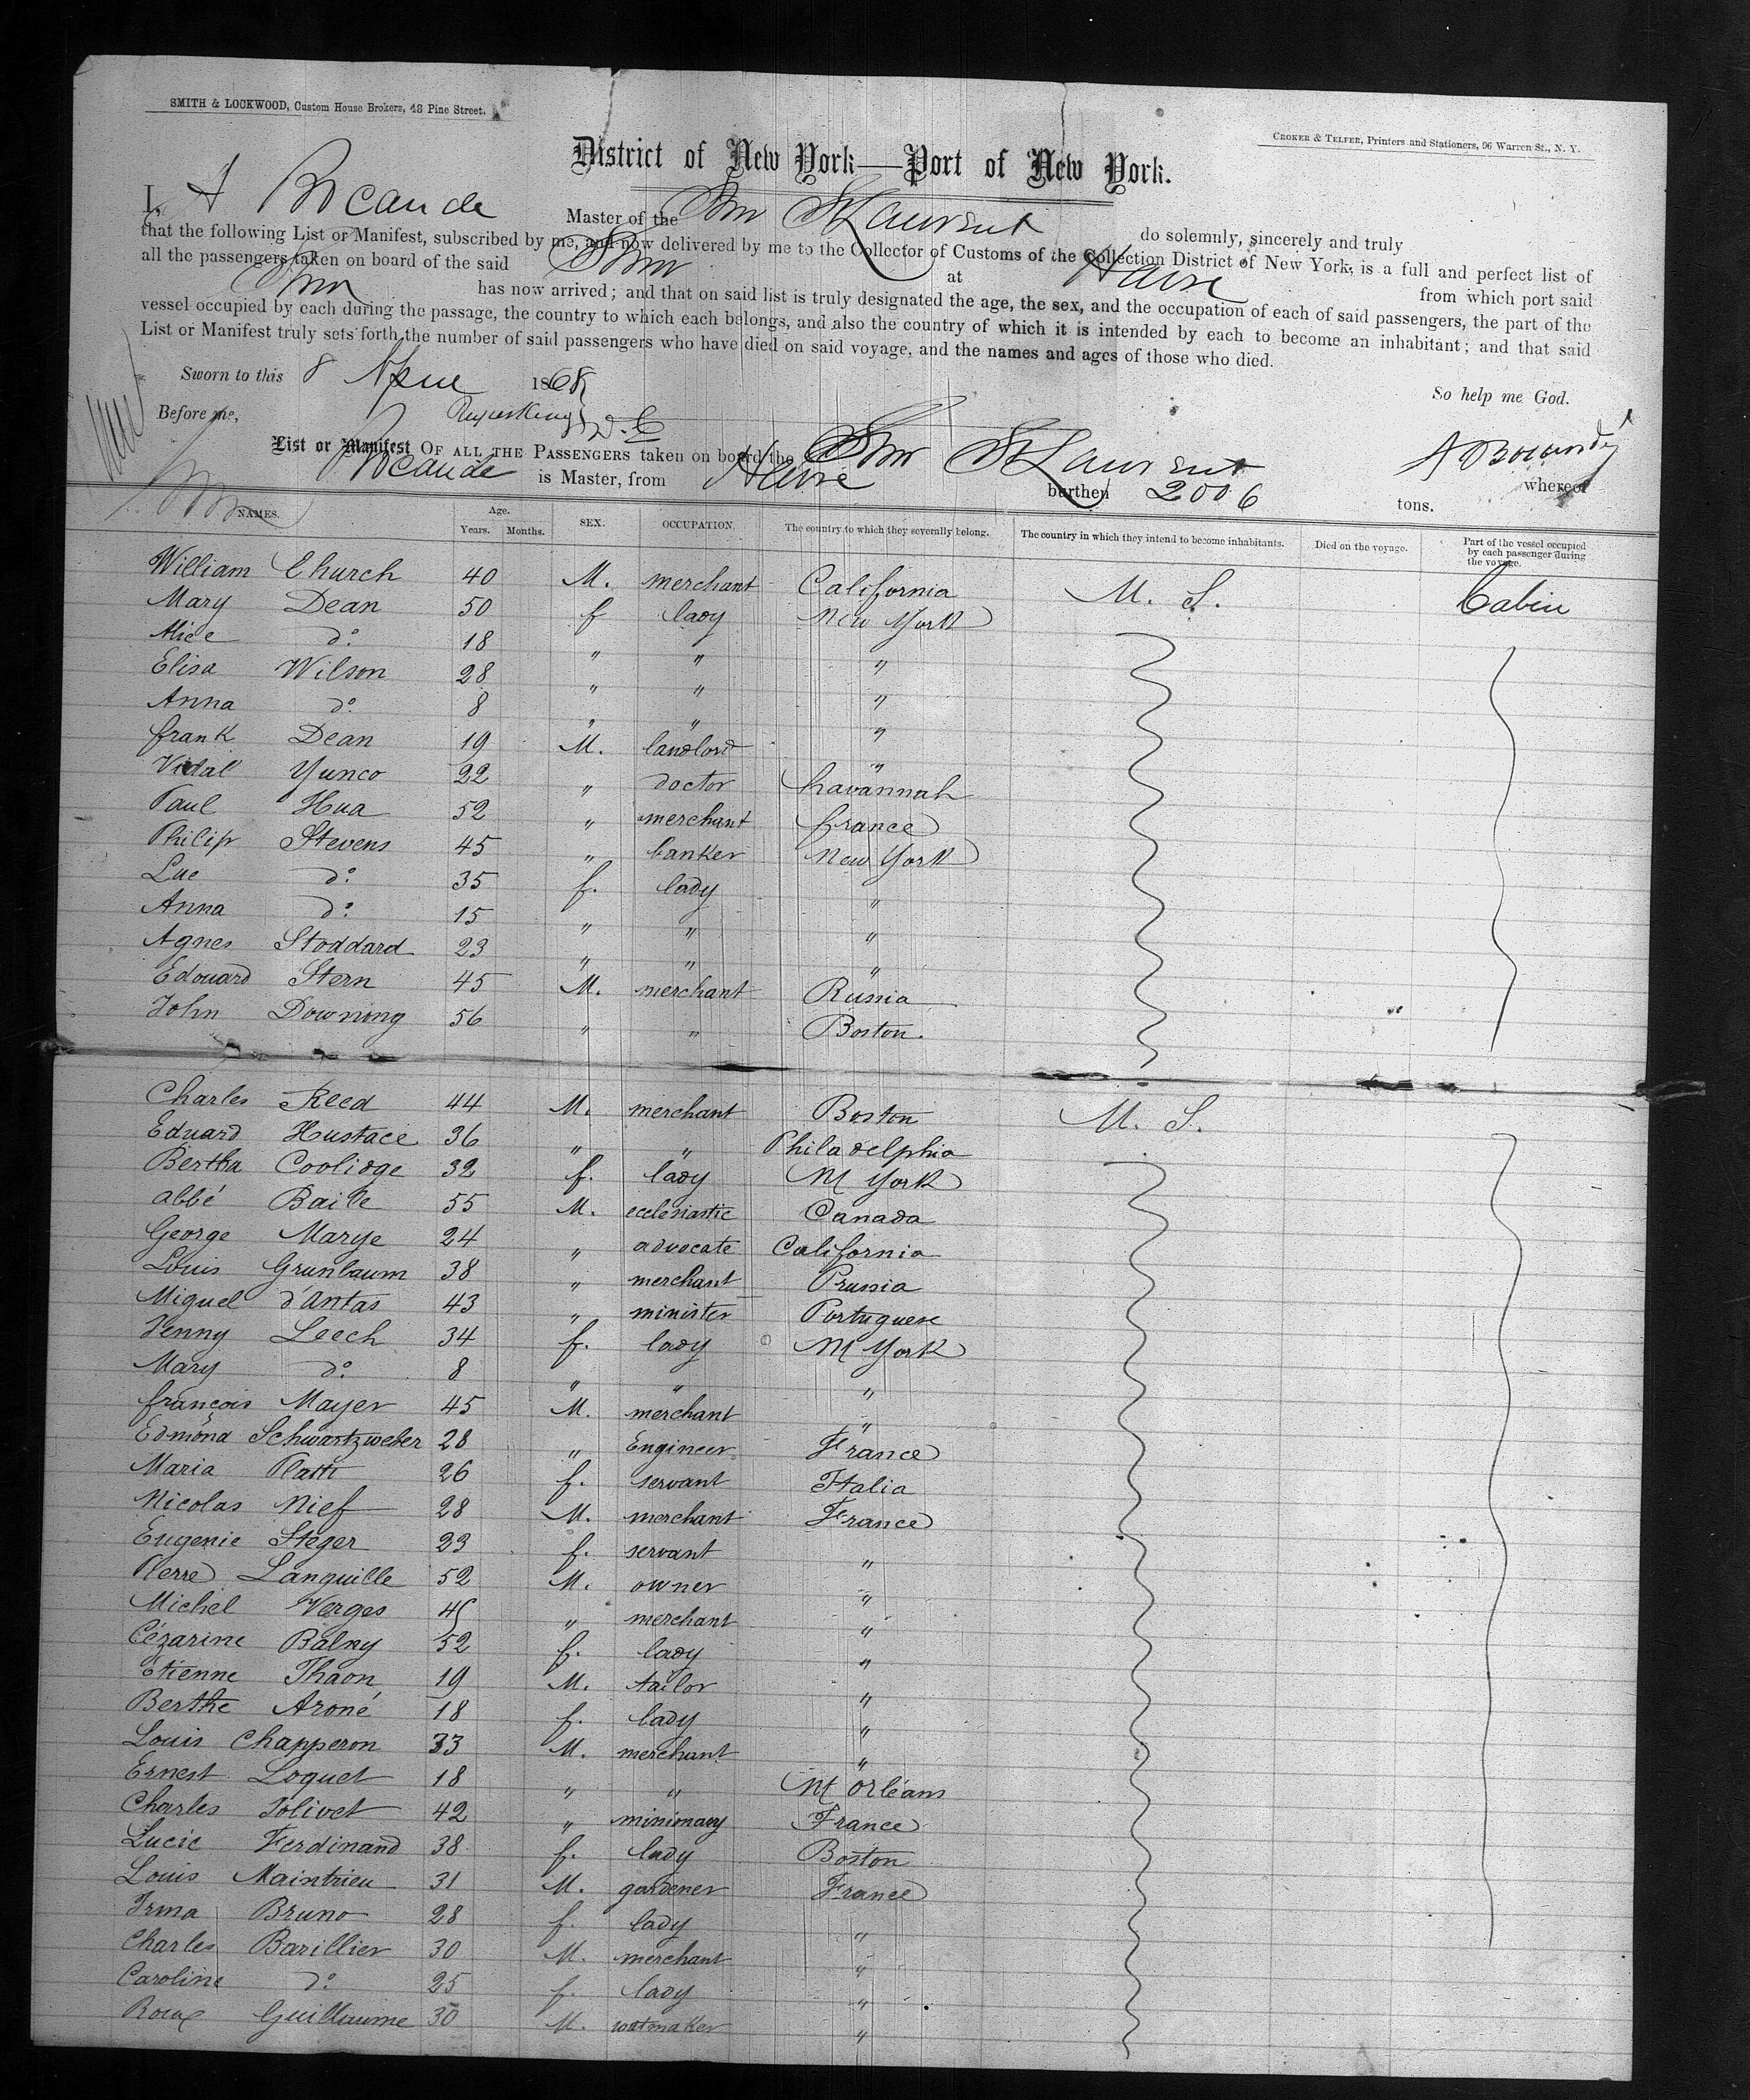 SMITH & LOCKWOOD, Custom House Brokers, 48 Pine Street.
CROKER & TELFER, Printers and Stationers, 96 Warren St., N. Y.
District of New York—Port of New York.
I, A Bocande Master of the Stmr St Laurent do solemnly, sincerely and truly
that the following List or Manifest, subscribed by me, and now delivered by me to the Collector of Customs of the Collection District of New York, is a full and perfect list of
all the passengers taken on board of the said Stmr at Havre from which port said
Stmr has now arrived; and that on said list is truly designated the age, the sex, and the occupation of each of said passengers, the part of the
vessel occupied by each during the passage, the country to which each belongs, and also the country of which it is intended by each to become an inhabitant; and that said
List or Manifest truly sets forth the number of said passengers who have died on said voyage, and the names and ages of those who died.
Sworn to this 8 April 1868 So help me God.
Before me, D. C A Bocandé
List or Manifest OF ALL THE PASSENGERS taken on board the Stmr St Laurent whereof
Bocande is Master, from Havre burthen 2006 tons.
NAMES. Age. Years. Months. SEX. OCCUPATION. The country to which they severally belong. The country in which they intend to become inhabitants. Died on the voyage. Part of the vessel occupied by each passenger during the voyage.
William Church 40 M. merchant California U. S. Cabin
Mary Dean 50 f lady New York
Alice do 18 " " "
Elisa Wilson 28 " " "
Anna do 8 " " "
frank Dean 19 M. landlord "
Vidal Yunco 22 " doctor havannah
Paul Hua 52 " merchant france
Philip Stevens 45 " banker New York
Lue do 35 f. lady "
Anna do 15 " " "
Agnes Stoddard 23 " " "
Edouard Stern 45 M. merchant Russia
John Downing 56 " " Boston.
Charles Reed 44 M. merchant Boston U. S.
Eduard Hustace 36 " " Philadelphia
Bertha Coolidge 32 f. lady N York
abbé Baile 55 M. ecclesiastic Canada
George Marye 24 " advocate California
Louis Grunbaum 38 " merchant Prussia
Miguel d'Antas 43 " minister Portuguese
Jenny Leech 34 f. lady N York
Mary do 8 " " "
françois Mayer 45 M. merchant "
Edmond Schwartzweber 28 " Engineer France
Maria Platti 26 f. servant Italia
Nicolas Nief 28 M. merchant France
Eugenie Steger 23 f. servant "
Pierre Languille 52 M. owner "
Michel Verges 45 " merchant "
Cézarine Balny 52 f. lady "
Etienne Thaon 19 M. tailor "
Berthe Aroné 18 f. lady "
Louis Chapperon 33 M. merchant "
Ernest Loquet 18 " " N Orléans
Charles Jolivet 42 " missionary France
Lucie Ferdinand 38 f. lady Boston
Louis Maintrieu 31 M. gardener France
Irma Bruno 28 f. lady "
Charles Barillier 30 M. merchant "
Caroline do 25 f. lady "
Roux Guillaume 30 M. watmaker "